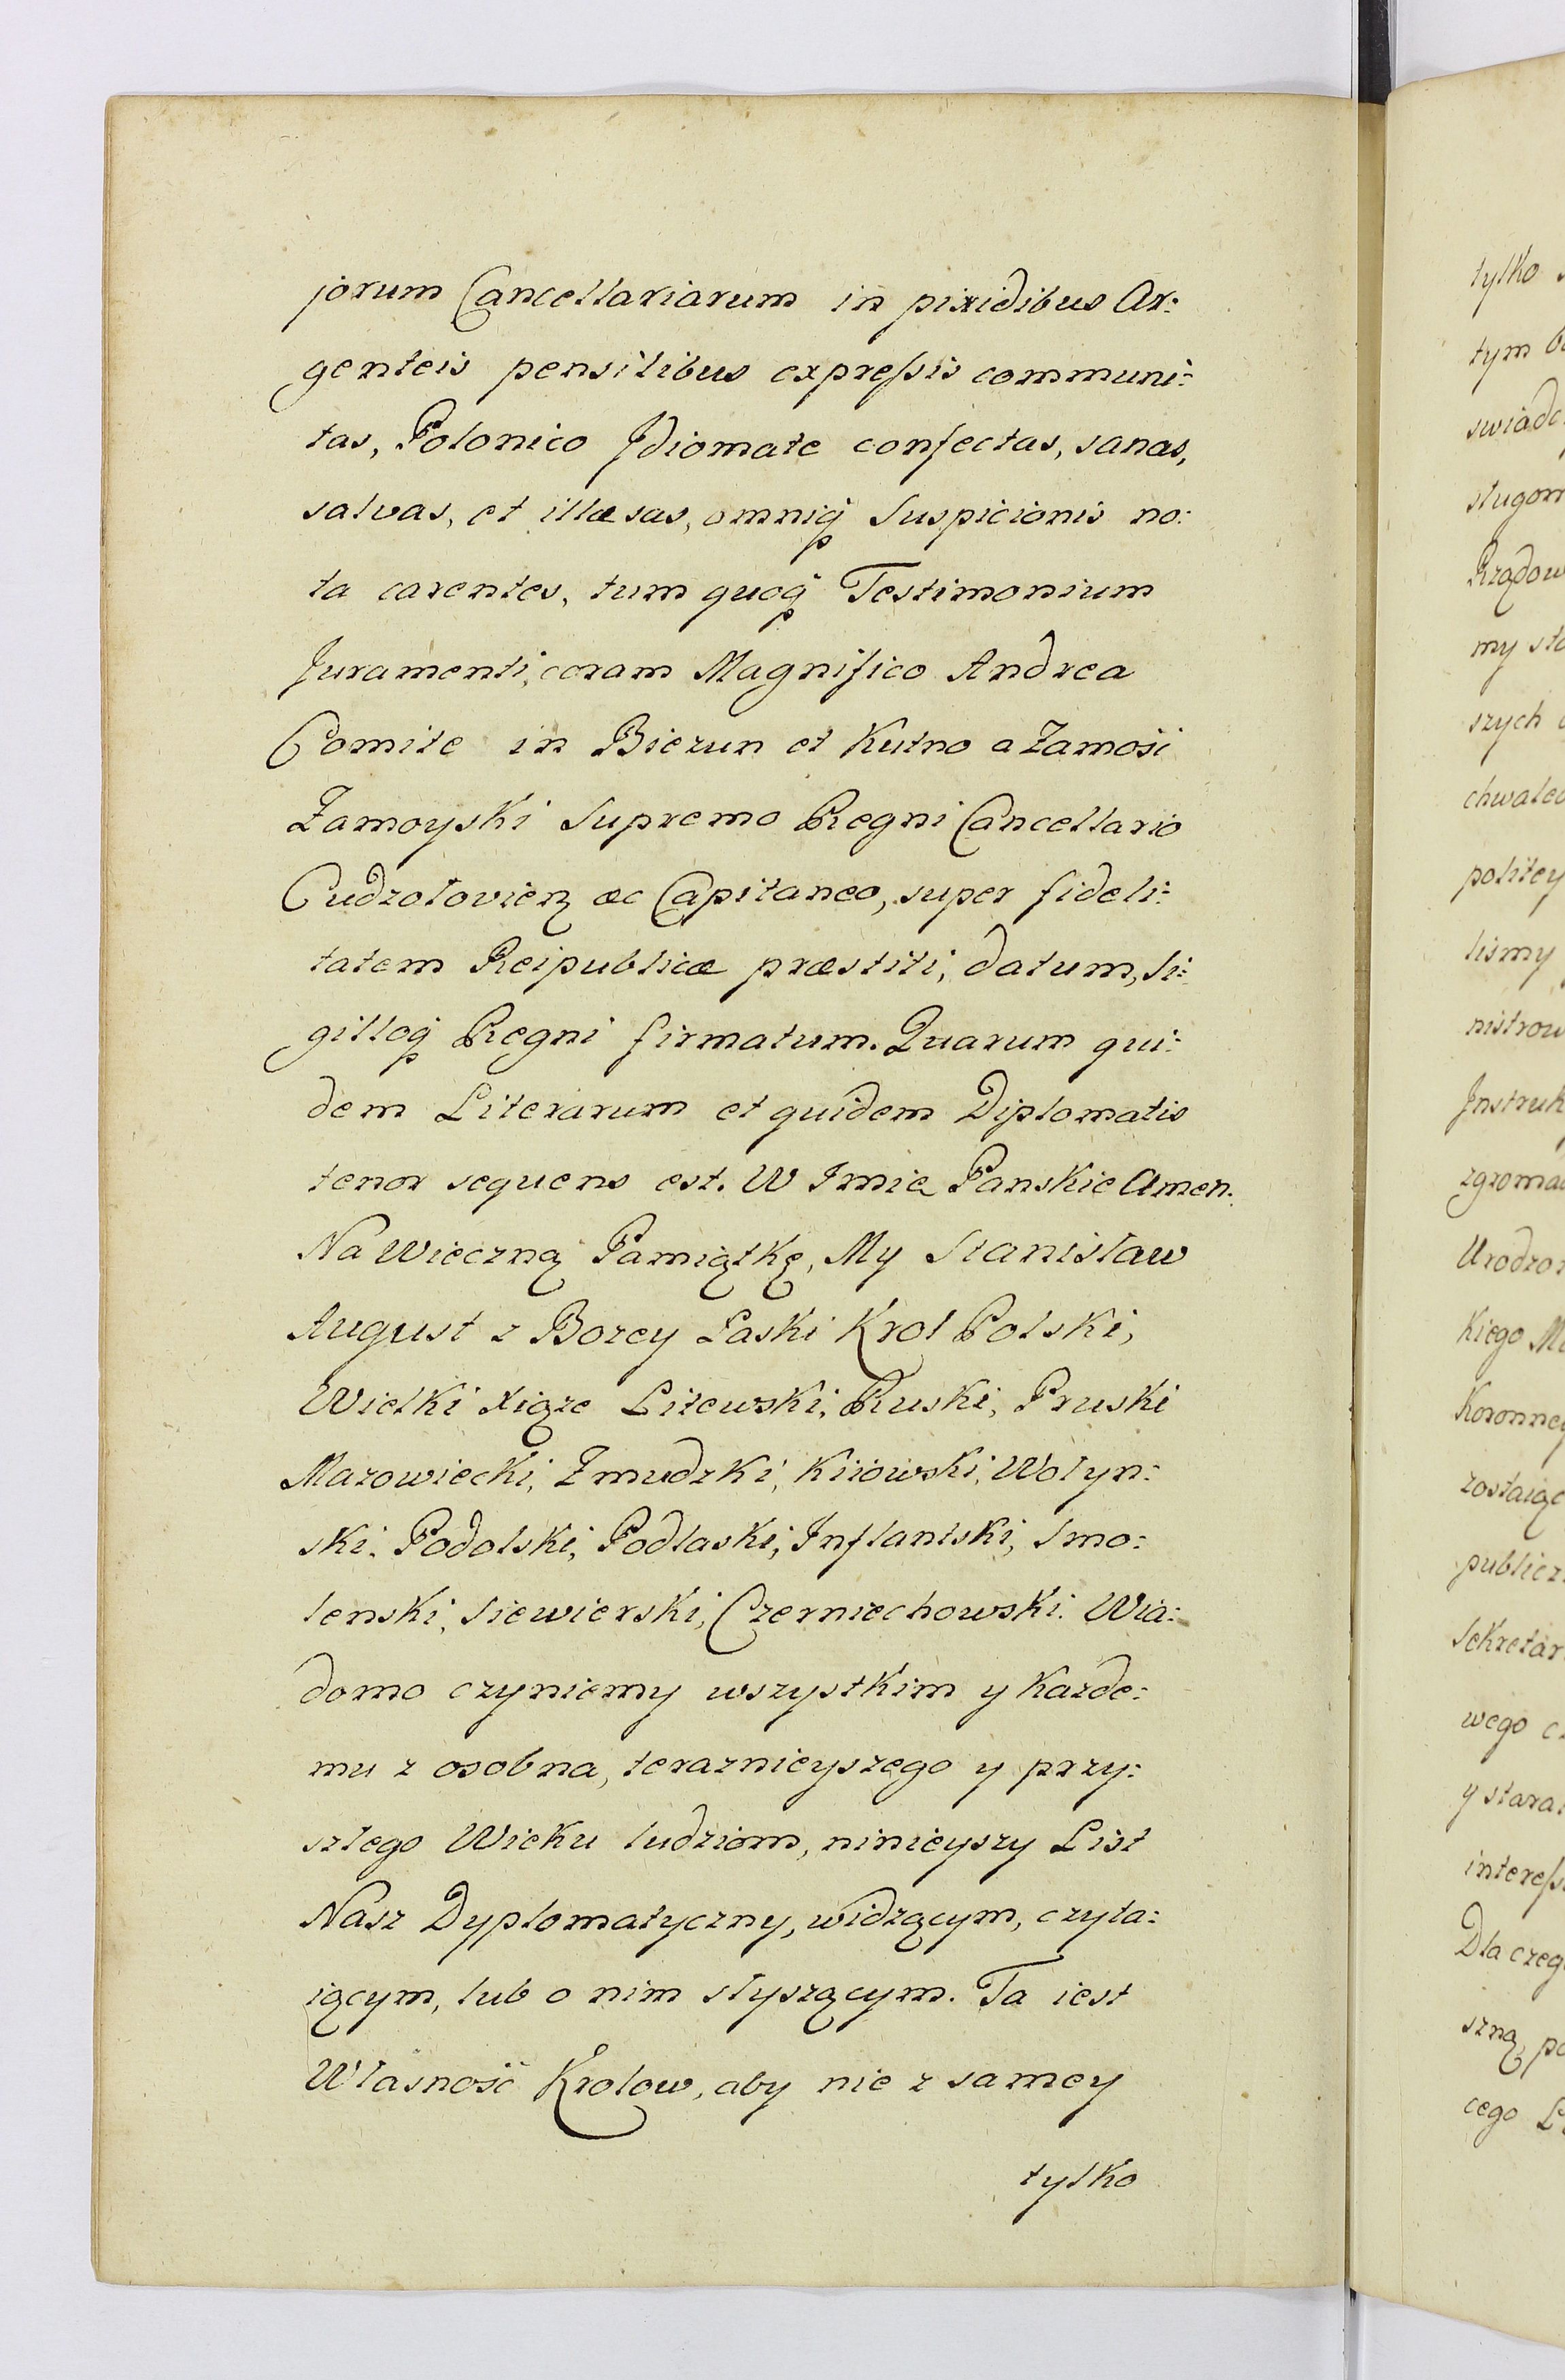 jorum Cancellariarum in pixidibus Ar:
genteis pensilibus expreſsis communi:
tas, Polonico Idiomate confectas, sanas,
salvas, et illæsas, omniq̀ Suspicionis no:
ta carentes, tum quoq̀ Testimonium
Juramenti, coram Magnifico Andrea
Comite in Biezun et Kutno a Zamosi
Zamoyski Supremo Regni Cancellario
Cudzolovien æc Capitaneo, super fideli:
tatem Reipublicæ præstiti, datum, Si:
gilloq̀ Regni firmatum. Quarum qui:
dem Literarum et quidem Diplomatis
tenor sequens est. W Imie Panskie Amen.
Na Wieczną Pamiątkę, My Stanisław
August z Bozey Łaski Krol Polski,
Wielki Xiąze Litewski, Ruski, Pruski
Mazowiecki, Zmudzki, Kiiowski, Wołyn:
ski, Podolski, Podlaski, Inflantski, Smo:
lenski, Siewierski, Czerniechowski. Wia:
domo czyniemy wszystkim y kazde:
mu z osobna, teraznieyszego y przy:
szłego Wieku ludziom, ninieyszy List
Nasz Dyplomatyczny, widzącym, czyta:
iącym, lub o nim słyszącym. Ta iest
Własność Krolow, aby nie z samey
tylko
tylko
tym
swiadc
sługom
Rządow
my
szych
chwaleb
politey
lismy
nistrow
Instruk
zgromad
Urodzon
kiego
Koronney
zostaiąc
publicz
Sekretar
wego
y staran
intereſs
Dla czego
szną, po
cego